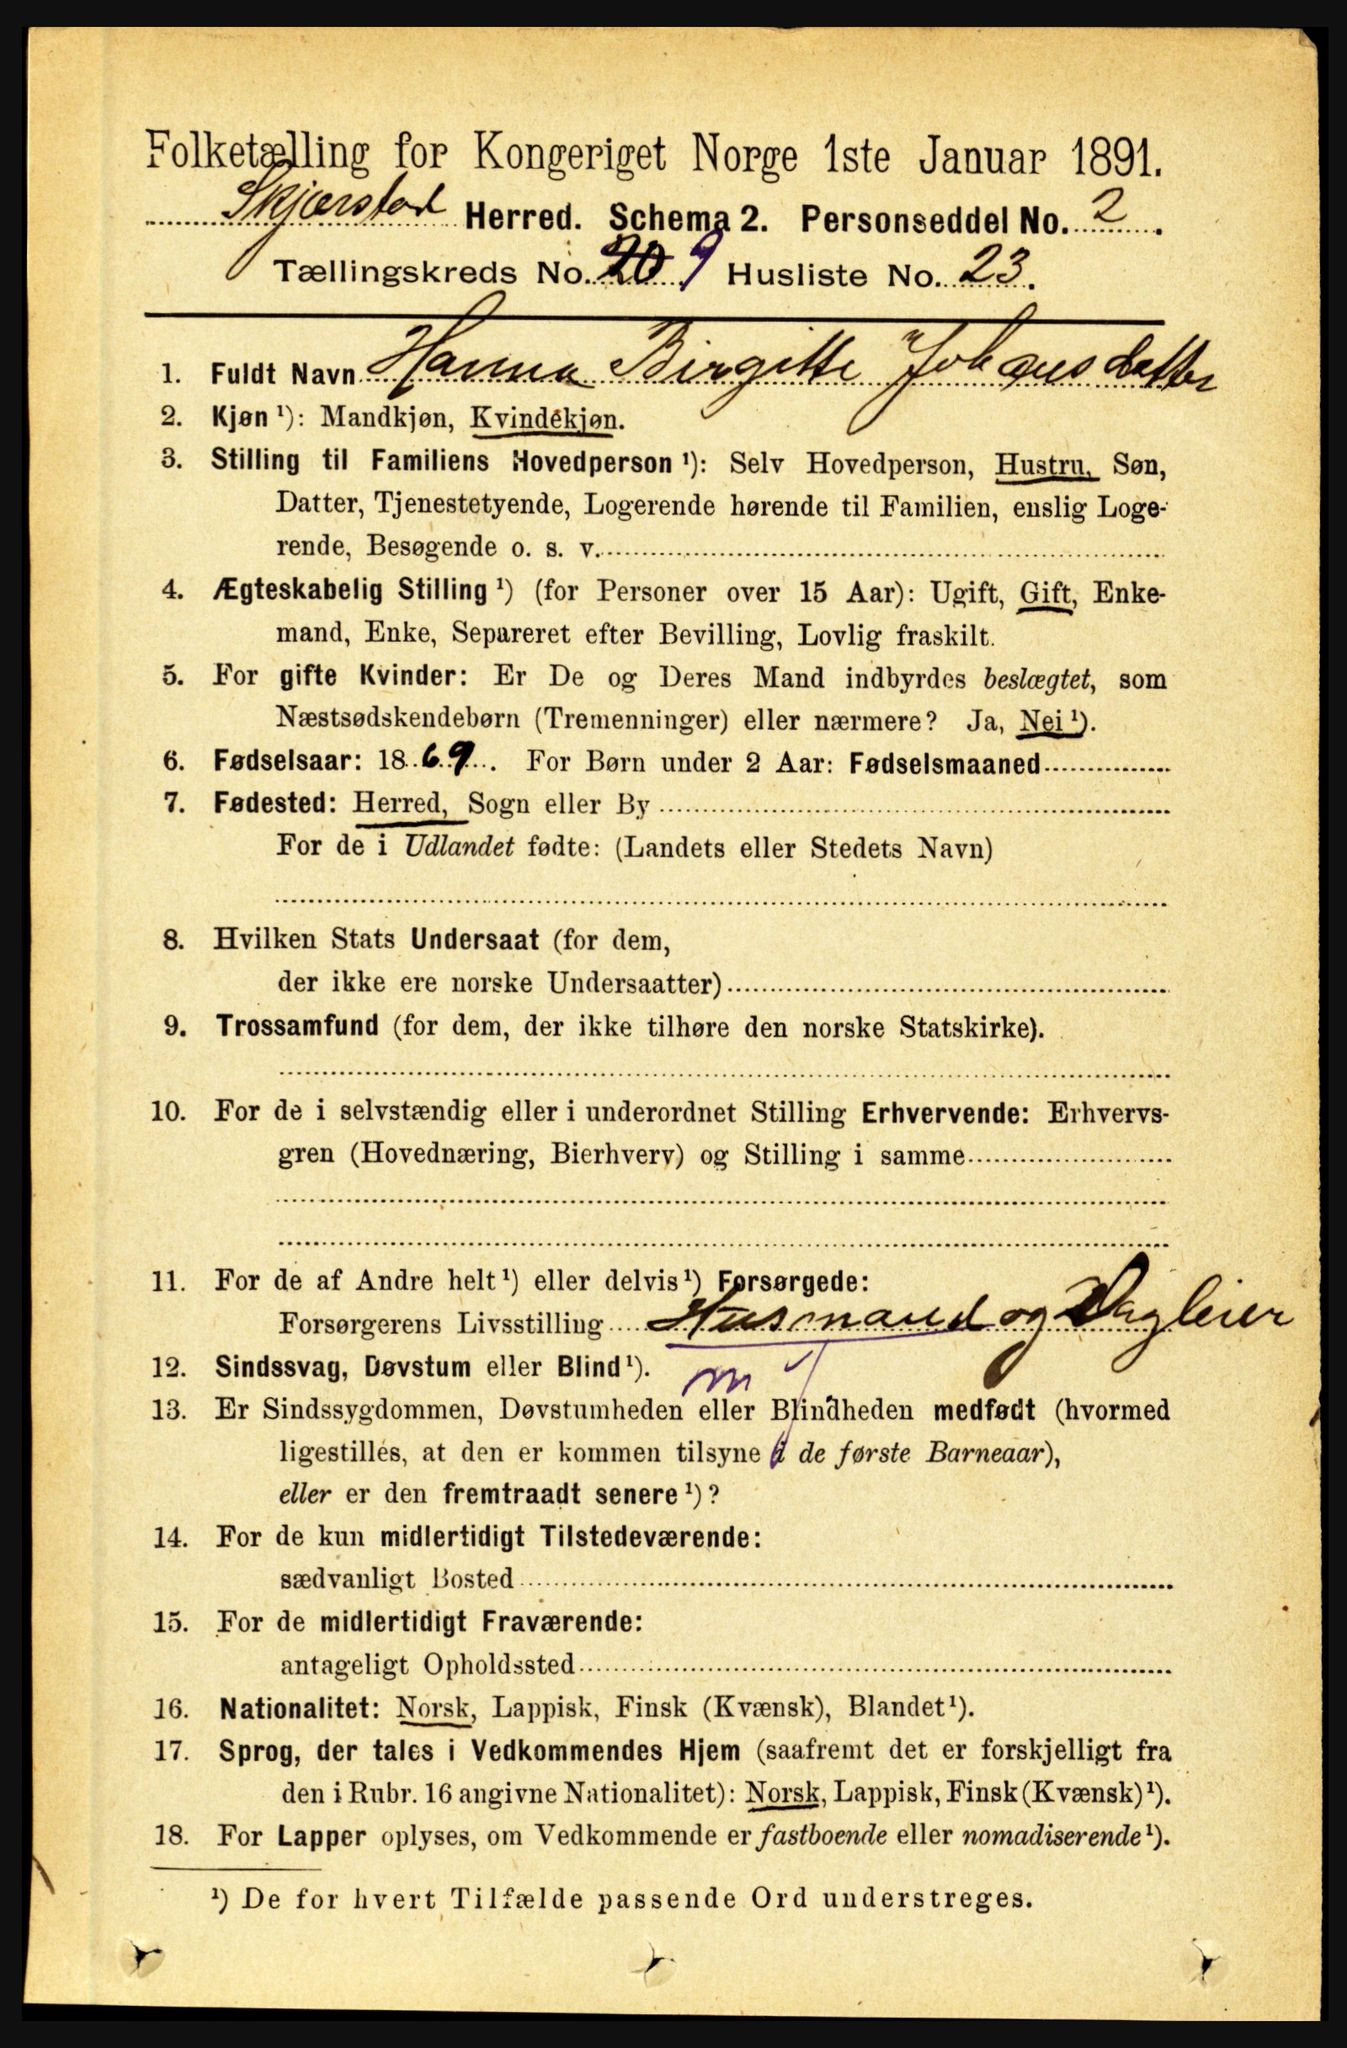 Folketælling for Kongeriget Norge 1ste Januar 1891.
Skjærstad Herred. Schema 2. Personseddel No. 2.
Tællingskreds No. 20 9 Husliste No. 23.
1. Fuldt Navn Hanna Birgitte Johansdatter
2. Kjøn ¹): Mandkjøn, Kvindekjøn.
3. Stilling til Familiens Hovedperson ¹): Selv Hovedperson, Hustru, Søn,
Datter, Tjenestetyende, Logerende hørende til Familien, enslig Loge-
rende, Besøgende o. s. v.
4. Ægteskabelig Stilling ¹) (for Personer over 15 Aar): Ugift, Gift, Enke-
mand, Enke, Separeret efter Bevilling, Lovlig fraskilt.
5. For gifte Kvinder: Er De og Deres Mand indbyrdes beslægtet, som
Næstsødskendebørn (Tremenninger) eller nærmere? Ja, Nei ¹).
6. Fødselsaar: 1869. For Børn under 2 Aar: Fødselsmaaned
7. Fødested: Herred, Sogn eller By
For de i Udlandet fødte: (Landets eller Stedets Navn)
8. Hvilken Stats Undersaat (for dem,
der ikke ere norske Undersaatter)
9. Trossamfund (for dem, der ikke tilhøre den norske Statskirke).
10. For de i selvstændig eller i underordnet Stilling Erhvervende: Erhvervs-
gren (Hovednæring, Bierhverv) og Stilling i samme
11. For de af Andre helt ¹) eller delvis ¹) Forsørgede:
Forsørgerens Livsstilling Husmand og Dagleier
12. Sindssvag, Døvstum eller Blind ¹). m
13. Er Sindssygdommen, Døvstumheden eller Blindheden medfødt (hvormed
ligestilles, at den er kommen tilsyne i de første Barneaar),
eller er den fremtraadt senere ¹)?
14. For de kun midlertidigt Tilstedeværende:
sædvanligt Bosted
15. For de midlertidigt Fraværende:
antageligt Opholdssted
16. Nationalitet: Norsk, Lappisk, Finsk (Kvænsk), Blandet ¹).
17. Sprog, der tales i Vedkommendes Hjem (saafremt det er forskjelligt fra
den i Rubr. 16 angivne Nationalitet): Norsk, Lappisk, Finsk (Kvænsk) ¹).
18. For Lapper oplyses, om Vedkommende er fastboende eller nomadiserende ¹).
¹) De for hvert Tilfælde passende Ord understreges.